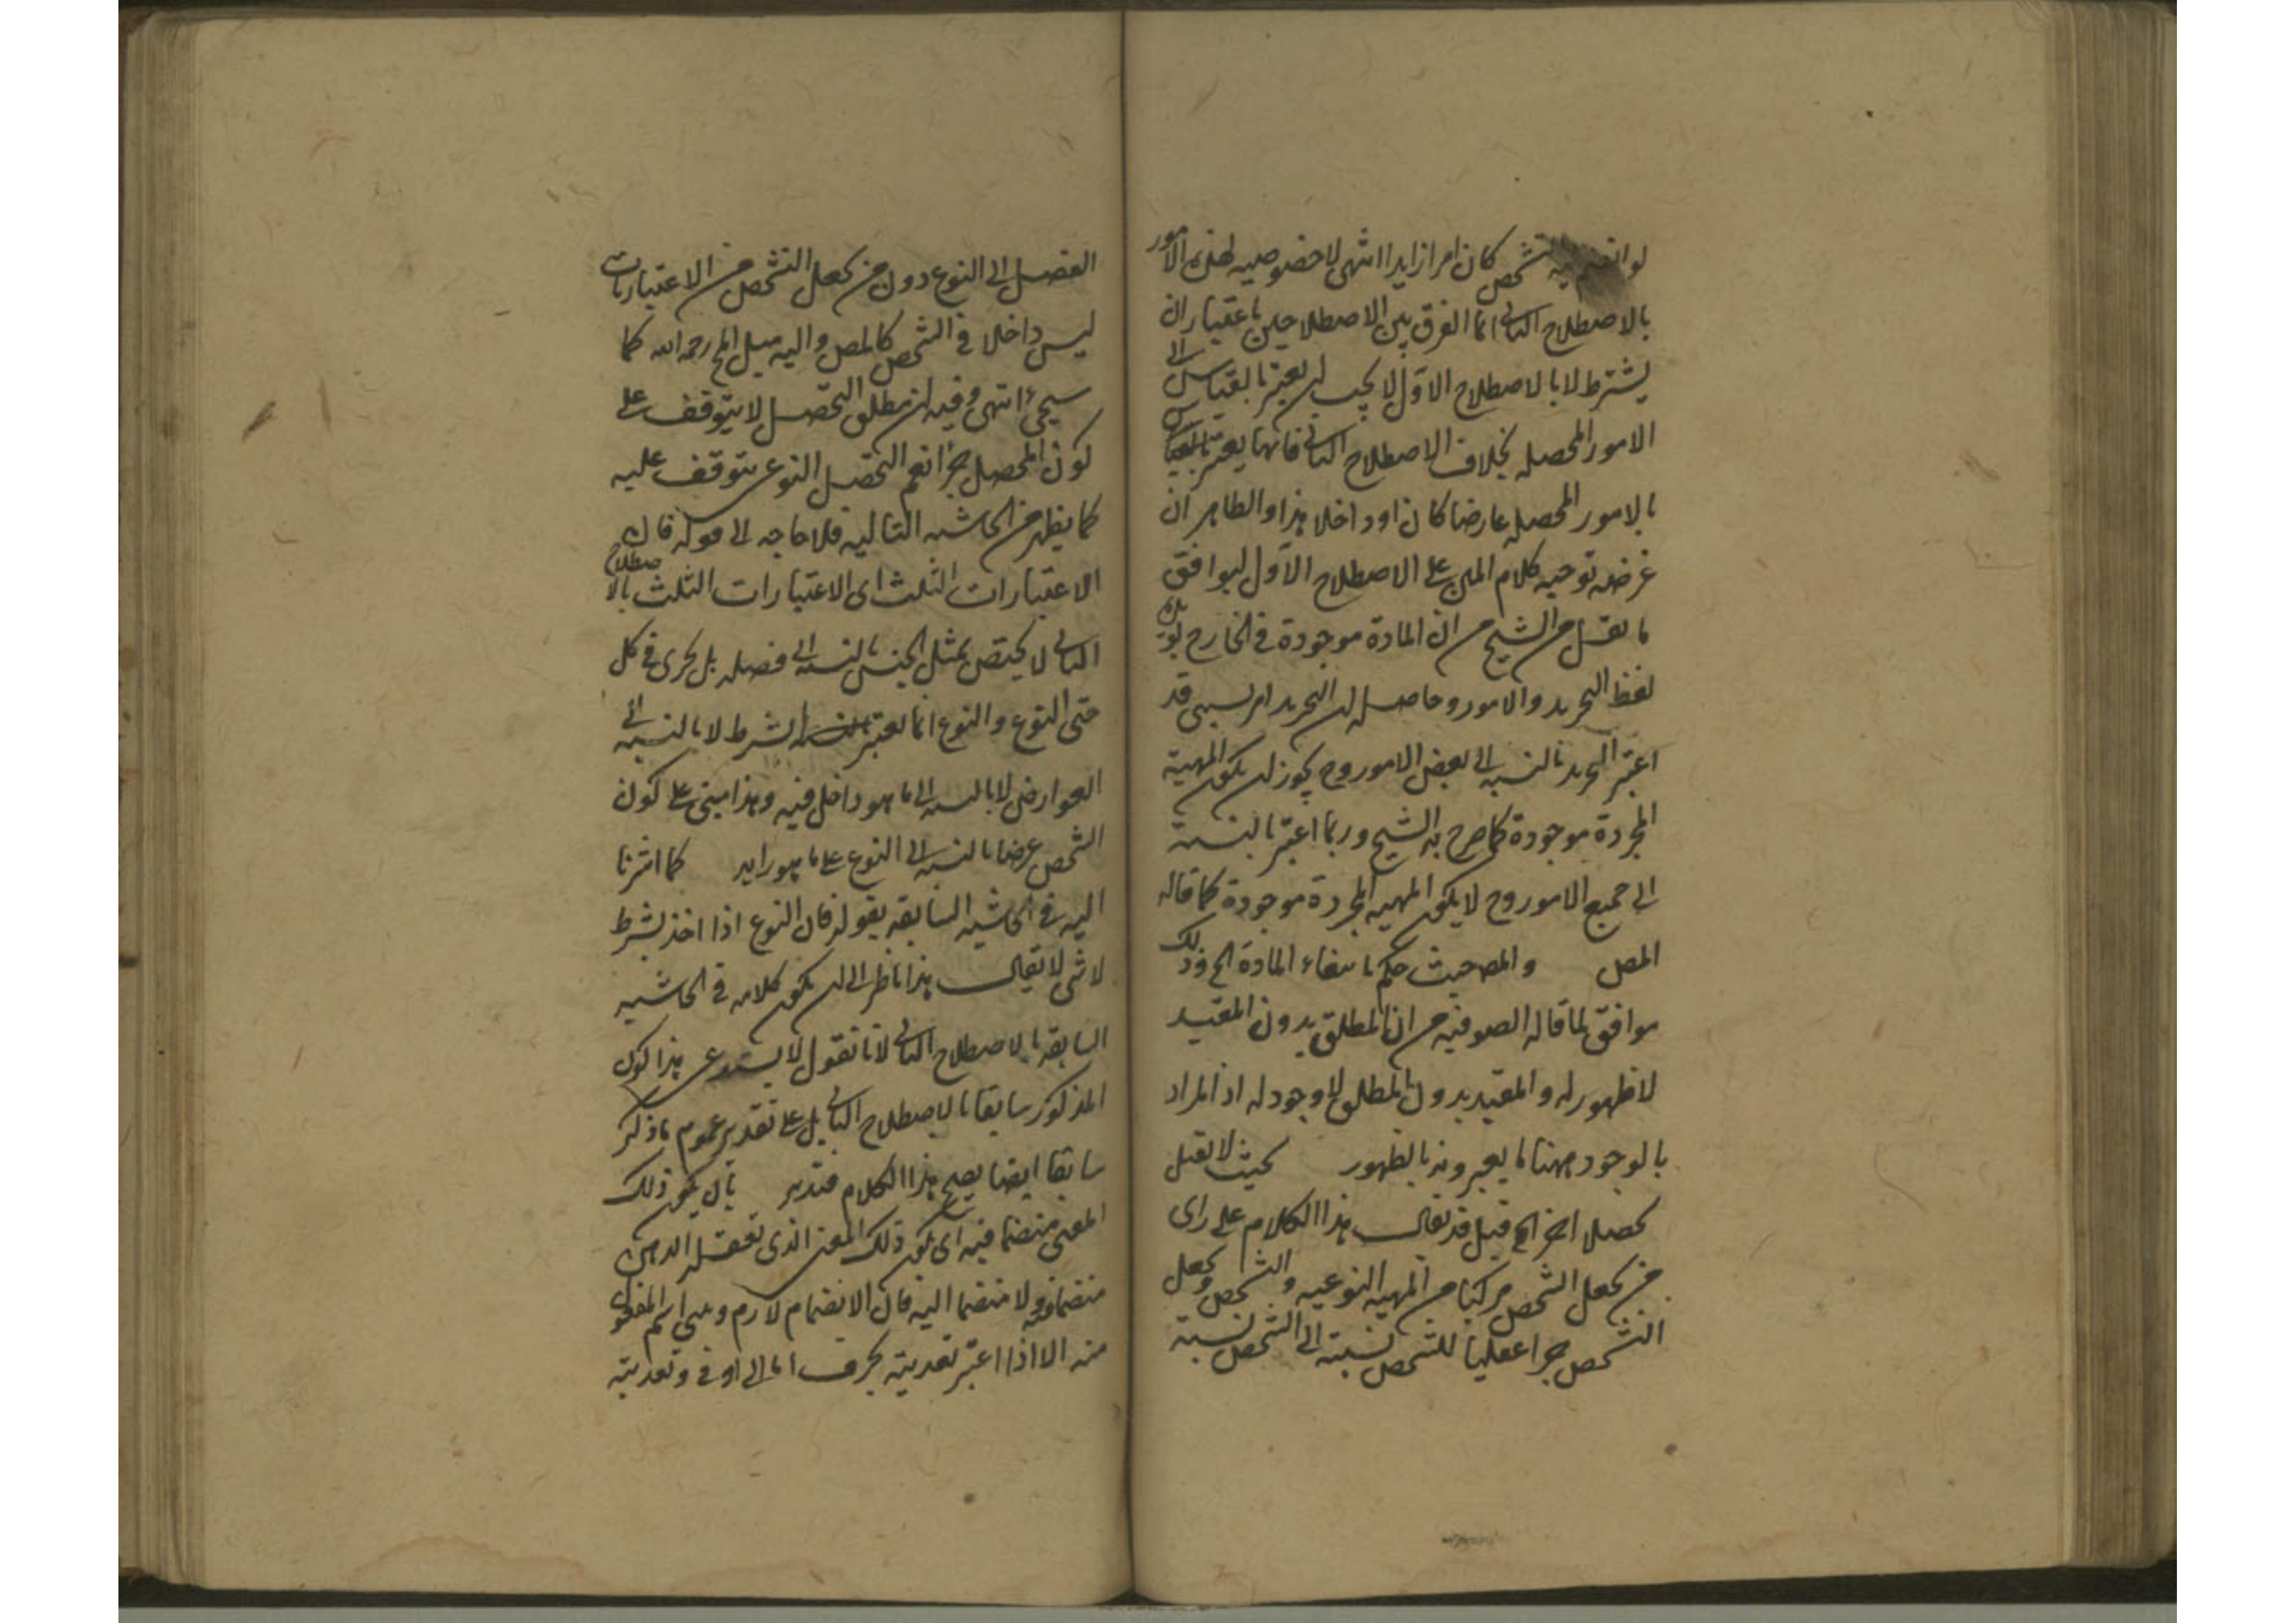 لو انضم اليه تشخص كان امرا زايدا انتهى لا خصوصيه لهذه الامور
بالاصطلاح الثانى انما الفرق بين الاصطلاحين باعتبار ان
بشرط لا بالاصطلاح الاول لا يجب ان يعتبر بالقياس الى
الامور المحصله بخلاف الاصطلاح الثانى فانها يعتبر بالقياس
بالامور المحصله عارضا كان او داخلا هذا والظاهر ان
غرضه توجيه كلام المص على الاصطلاح الاول ليوافق
ما نقل من الشيخ من ان المادة موجودة فى الخارج
لفظ التجريد والامور وحاصله ان التجريد امر نسبى قد
اعتبر التجريد بالنسبه الى بعض الامور وح يجوز ان يكون المهية
المجردة موجودة كما صرح به الشيخ وربما اعتبر بالنسبة
الى جميع الامور وح لا يكون المهيه المجردة موجودة كما قاله
المص والمص حيث حكم بانتفاء المادة الخ وذلك
موافق لما قاله الصوفيه من ان المطلق بدون المقيد
لا ظهور له والمقيد بدون المطلق لا وجود له اذ المراد
بالوجود مهنا ما يعبرونه بالظهور بحيث لا يقبل
تحصلا اخر الخ قيل قد يقال هذا الكلام على راى
من يجعل الشخص مركبا من المهيه النوعيه والتشخص ويجعل
التشخص جزا عقليا للشخص نسبته الى الشخص نسبة
الفصل الى النوع دون من يجعل التشخص من الاعتباريات
ليس داخلا فى الشخص كالمص واليه ميل المح رحمه الله كما
سيجئ انتهى وفيه ان مطلق التحصل لا يتوقف على
كون المحصل جزا نعم التحصل النوعى يتوقف عليه
كما يظهر من الحاشيه التاليه فلا حاجه الى قوله قال
الاعتبارات الثلث اى الاعتبارات الثلث بالاصطلاح
الثانى لا يختص بمثل الجنس بالنسبه الى فصله بل يجرى فى كل
حتى النوع والنوع انما يعتبر بشرط لا بالنسبه الى
العوارض لا بالنسبه الى ما هو داخل فيه وهذا مبنى على كون
الشخص عرضا بالنسبه الى النوع على ما هو رايه كما اشرنا
اليه فى الحاشيه السابقه بقوله فان النوع اذا اخذ بشرط
لا شى لا يقال هذا ناظر الى ان يكون كلامه فى الحاشيه
السابقه بالاصطلاح الثانى لانا نقول لا يستدعى هذا كون
المذكور سابقا بالاصطلاح الثانى بل على تقدير عموم ما ذكر
سابقا ايضا يصح هذا الكلام فتدبر بان يكون ذلك
المعنى منضما فيه اى يكون ذلك المعنى الذى تعقله الذهن
منضما فيه ولا منضما اليه فان الانضمام لازم وبنى اسم المفعول
منه الا اذا اعتبر تعديته بحرف اما الى او فى وتعديته